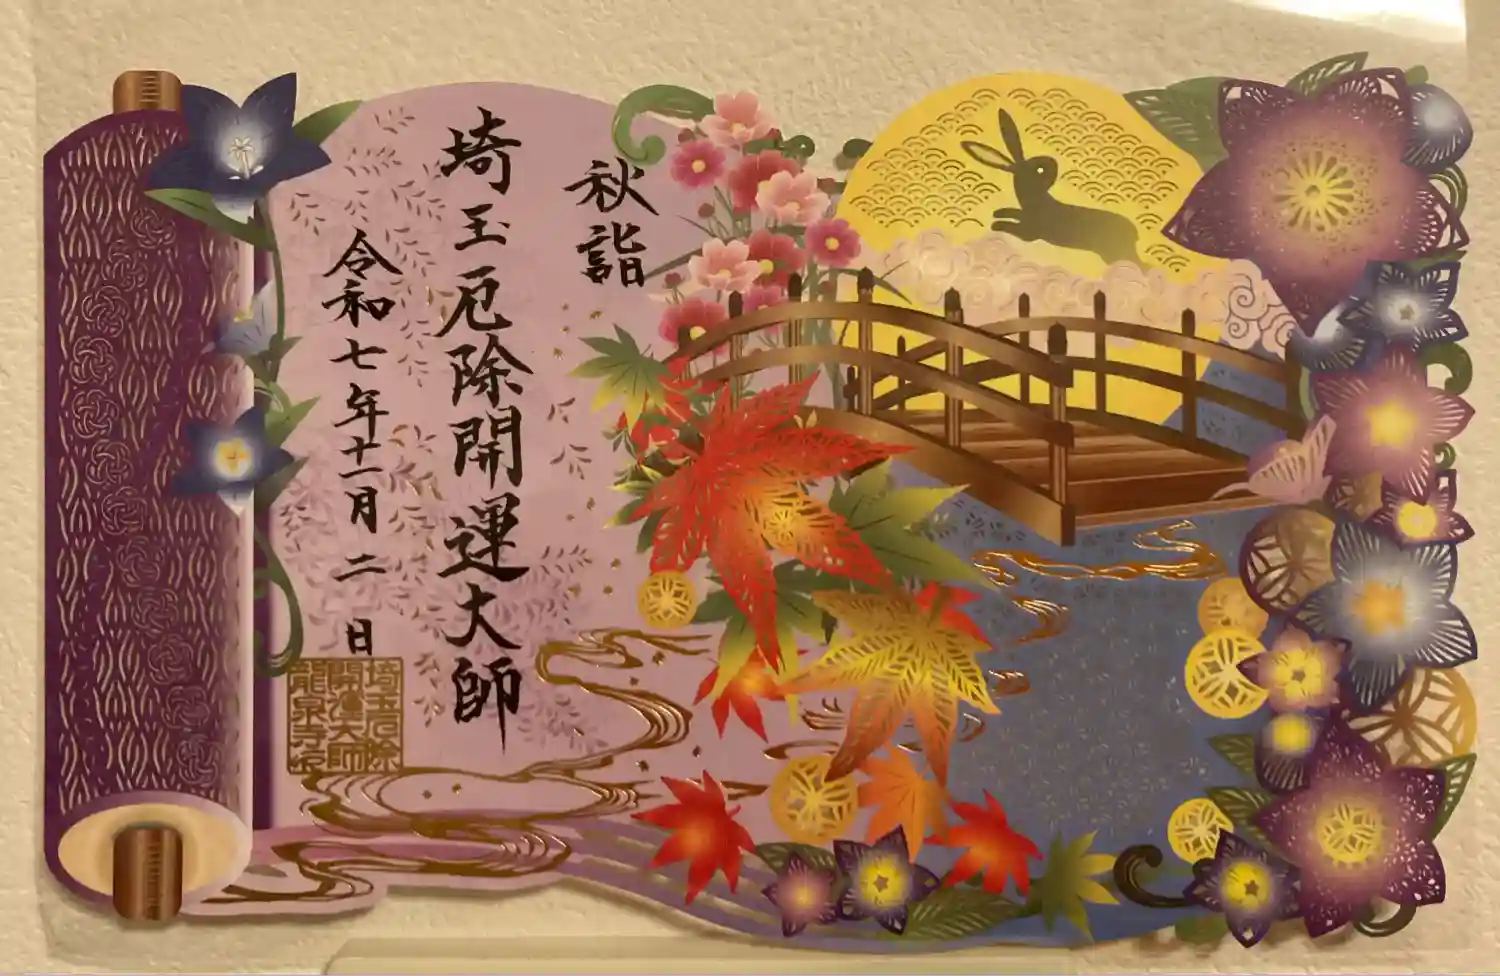 秋詣
埼玉厄除開運大師
令和七年十一月二日
埼玉厄除
開運大師
龍泉寺印